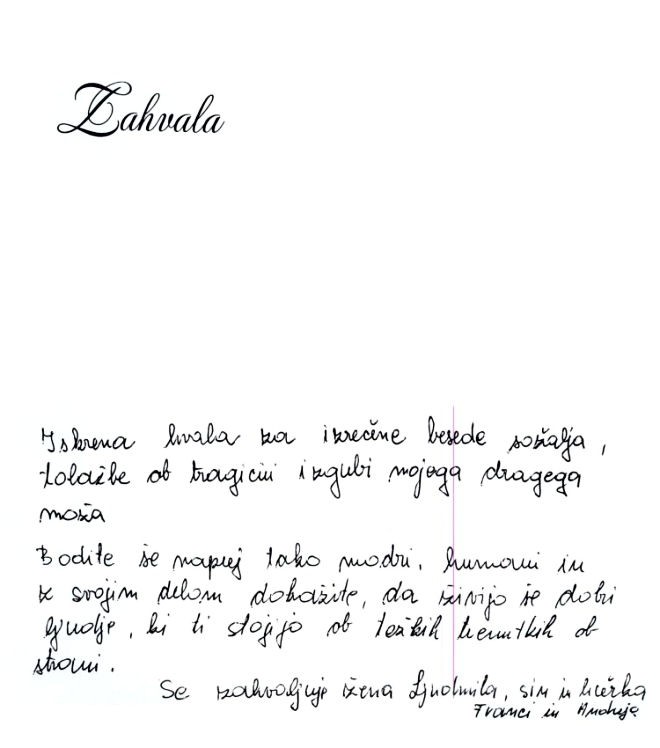 Zahvala
Iskrena hvala za izrečene besede sožalja,
tolažbe ob tragični izgubi mojega dragega
moža
Bodite še naprej tako modri, humani in
z svojim delom dokažite, da živijo še dobri
ljudje, ki ti stojijo ob težkih trenutkih ob
strani.
Se zahvaljuje žena Ljudmila, sin in hčerka
Franci in Andreja